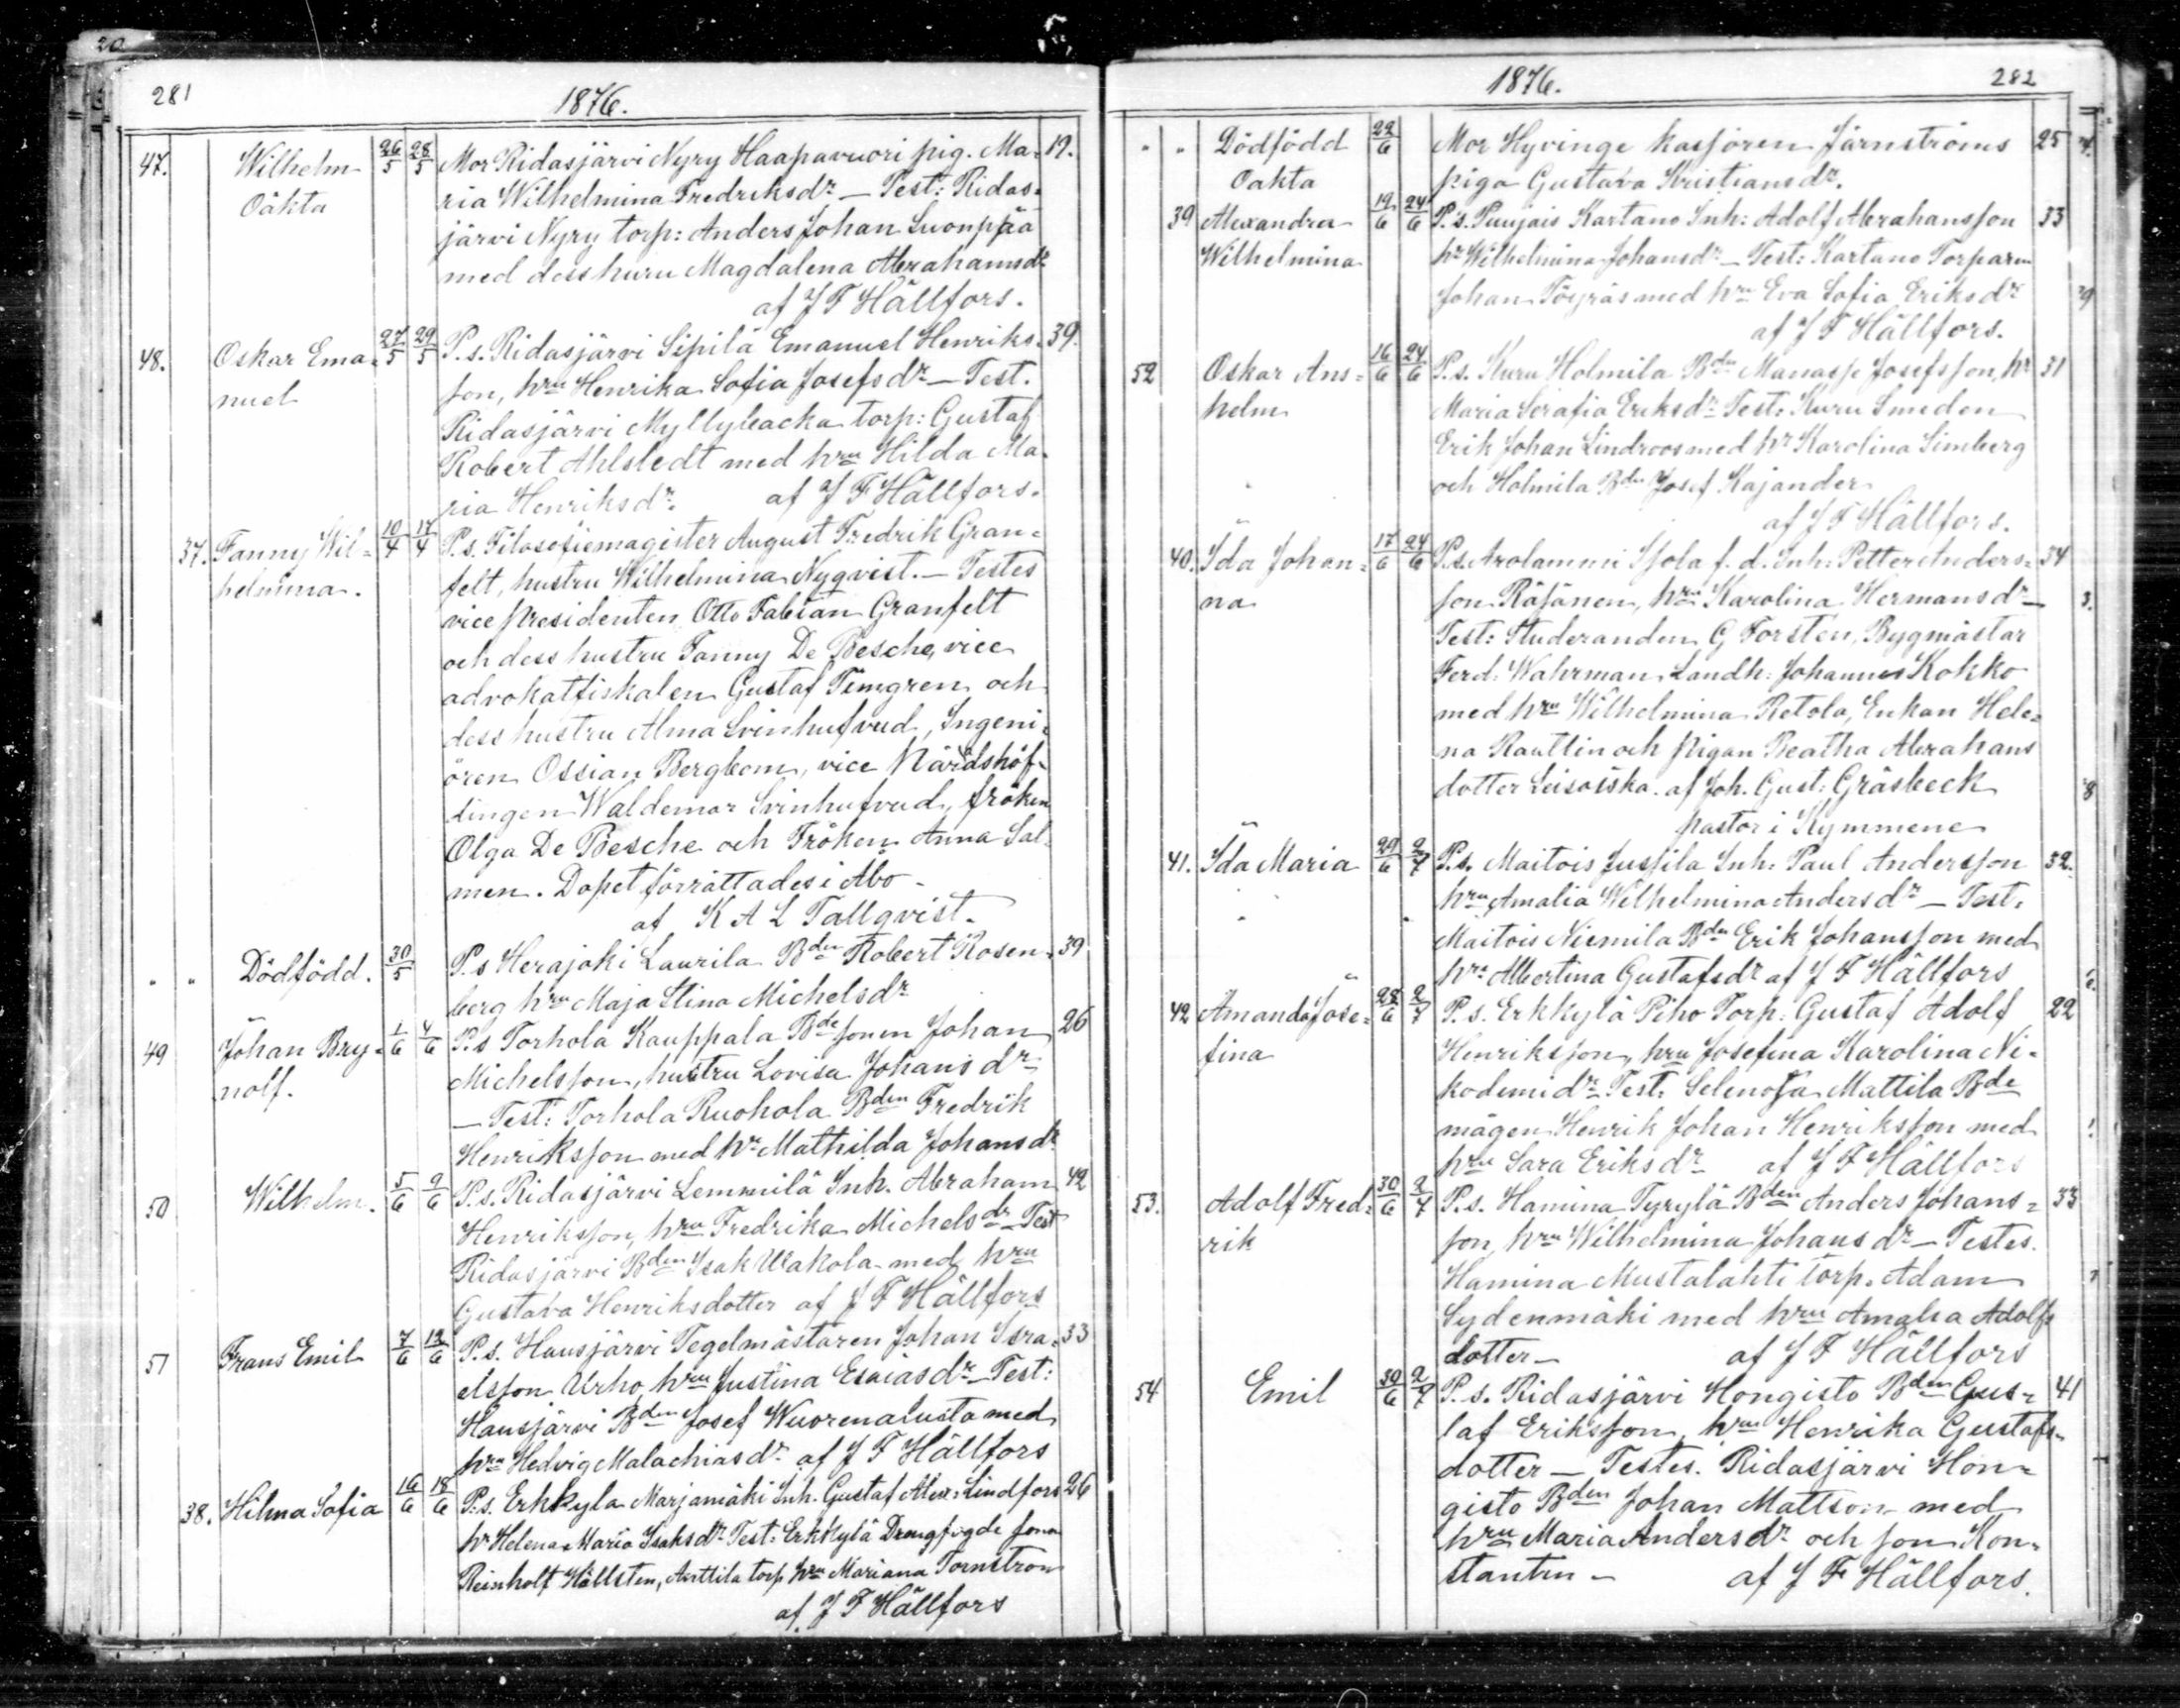 281
1876.
47. Wilhelm 26/5 28/5 Mor Ridasjärvi Nyry Haapavuori pig. Ma- 19.
Oäkta ria Wilhelmina Fredriksdr – Test: Ridas-
järvi Nyry torp: Anders Johan Luonpää
med dess huru Magdalena Abrahamsdr
af J F Hällfors.
48. Oskar Ema- 27/5 29/5 P. s. Ridasjärvi Sipilä Emanuel Henriks- 39.
nuel son, hru Henrika Sofia Josefsdr – Test.
Ridasjärvi Myllybacka torp: Gustaf
Robert Ahlstedt med hru Hilda Ma-
ria Henriksdr. af J F Hällfors.
37. Fanny Wil- 10/4 17/4 P. s. Filosofiemagister August Fredrik Gran-
helmina. felt, hustru Wilhelmina Nyqvist. – Testes
vice presidenten Otto Fabian Granfelt
och dess hustru Fanny De Besche, vice
advokatfiskalen Gustaf Timgren och
dess hustru Alma Svinhufvud, Ingeni-
ören Ossian Bergbom, vice Häradshöf-
dingen Waldemar Svinhufvud, fröken
Olga De Besche och Fröken Anna Sal-
men. Dopet förrättades i Åbo –
af K A L Tallqvist.
" " Dödfödd. 30/5 P. s Herajoki Laurila Bden Robert Rosen- 39
berg hru Maja Stina Michelsdr
49 Johan Bry- 1/6 4/6 P. s Torhola Kauppala Bde sonen Johan 26
nolf. Michelsson, hustru Lovisa Johansdr
– Test: Torhola Ruohola Bden Fredrik
Henriksson med hr Mathilda Johansdr.
50 Wilhelm. 5/6 9/6 P. s. Ridasjärvi Lemmilä Inh. Abraham 42
Henriksson, hru Fredrika Michelsdr – Test
Ridasjärvi Bden Isak Uakola med hru
Gustava Henriksdotter af J F Hällfors
51 Frans Emil 7/6 12/6 P. s. Hausjärvi Tegelmästaren Johan Isra- 33
elsson Urho, hru Justina Esaiasdr – Test:
Hausjärvi Bden Josef Wuorenalusta med
hru Hedvig Malachiasdr af J F Hällfors
38. Hilma Sofia 16/6 18/6 P. s. Erkkyla Marjamäki Inh. Gustaf Alex: Lindfors 26
hr Helena Maria Isaksdr Test: Erkkylä Drengfogde
Reinholt Hällsten, Anttila torp hru Mariana Tornstrom
af J F Hällfors
1876.
282
" " Dödfödd 22/6 Mor Hyvinge kassören Järnströms 25
Oäkta piga Gustava Kristiansdr.
39 Alexandra 19/6 24/6 P. s. Puujais Kartano Inh: Adolf Abrahansson 33
Wilhelmina hr Wilhelmina Johansdr – Test: Kartano Torparen
Johan Töyräs med hru Eva Sofia Eriksdr
af J F Hällfors.
52 Oskar Ans- 16/6 24/6 P. s. Kuru Holmila Bden Manasse Josefsson, hr 31
helm Maria Serafia Eriksdr Test: Kuru Smeden
Erik Johan Lindroos med hr Karolina Simberg
och Holmila Bden Josef Kajander
af J F Hällfors.
40. Ida Johan- 17/6 24/6 P. s. Arolammi Isola f. d. Inh: Petter Anders- 34
na son Räsänen, hru Karolina Hermansdr –
Test: Studeranden G Forsten, Bygmästar
Ferd: Wahrman, Landh: Johannes Kokko
med hru Wilhelmina Retola, Enkan Hele-
na Rauttin och pigan Beatha Abrahans
dotter af Joh. Gust: Gräsbeck
pastor i Kymmene
41. Ida Maria 29/6 2/7 P. s. Maitois Jussila Inh: Paul Andersson 32.
hru Amalia Wilhelmina Andersdr – Test.
Maitois Niemila Bden Erik Johansson med
hru Albertina Gustafsdr af J F Hällfors
42 Amanda Jose- 28/6 2/7 P. s. Erkkylä Piho Torp: Gustaf Adolf 22
fina Henriksson, hru Josefina Karolina Ni-
kodemidr Test: Selenoja Mattila Bde
mågen Henrik Johan Henriksson med
hru Sara Eriksdr af J F Hällfors
53. Adolf Fred- 30/6 2/7 P. s. Hamina Tyrylä Bden Anders Johans- 33
rik son, hru Wilhelmina Johansdr – Testes.
Hamina Mustalahti torp. Adam
Sydenmäki med hru Amalia Adolfs
dotter – af J F Hällfors
54 Emil 30/6 2/7 P. s. Ridasjärvi Hongisto Bden Gus- 41
taf Eriksson, hru Henrika Gustafs-
dotter – Testes. Ridasjärvi Hon-
gisto Bden Johan Mattson med
hru Maria Andersdr och son Kon-
stantin – af J F Hällfors.